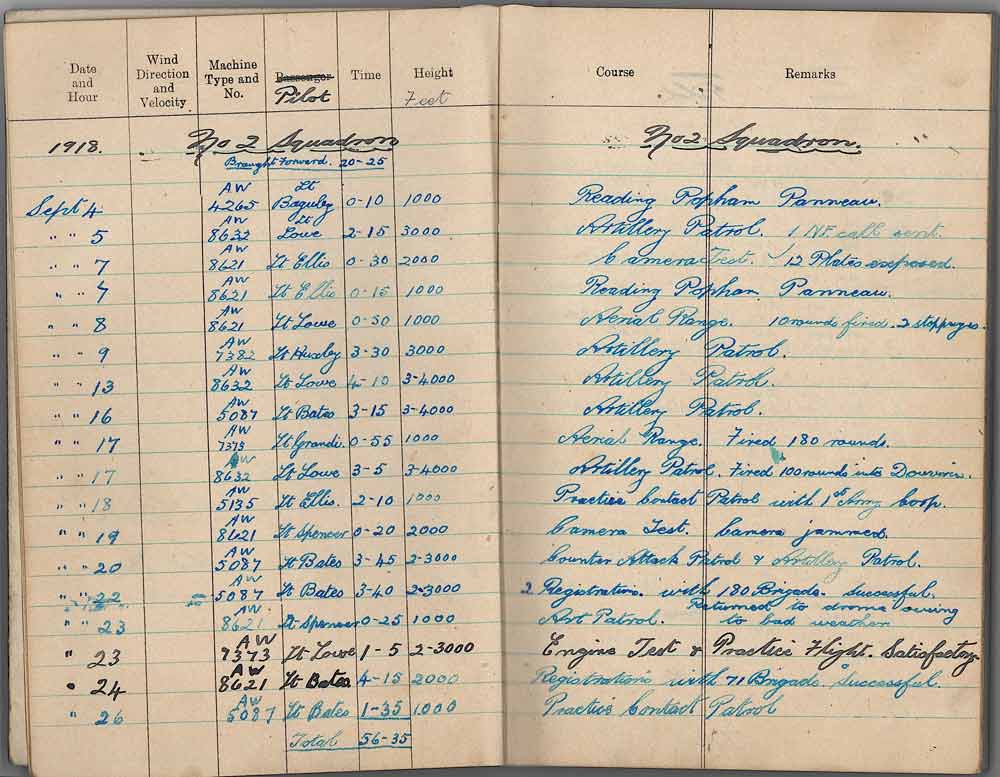 Date and Hour Wind Direction and Velocity Machine Type and No. Passenger Pilot Time Height Feet Course Remarks
1918. No 2 Squadron No 2 Squadron.
Brought Forward. 20-25
Sept 4 AW 4265 Lt Baguley 0-10 1000 Reading Popham Panneau.
" " 5 AW 8632 Lt Lowe 2-15 3000 Artillery Patrol. 1 N.F. call sent.
" " 7 AW 8621 Lt Ellis 0-30 2000 Camera Test. 12 Plates exposed.
" " 7 AW 8621 Lt Ellis 0-15 1000 Reading Popham Panneau.
" " 8 AW 8621 Lt Lowe 0-50 1000 Aerial Range. 10 rounds fired. 2 stoppages.
" " 9 AW 7382 Lt Huxley 3-30 3000 Artillery Patrol.
" " 13 AW 8632 Lt Lowe 4-10 3-4000 Artillery Patrol.
" " 16 AW 5087 Lt Bates 3-15 3-4000 Artillery Patrol.
" " 17 AW 7373 Lt 0-55 1000 Aerial Range. Fired 180 rounds.
" " 17 AW 8632 Lt Lowe 3-5 3-4000 Artillery Patrol. Fired 100 rounds into Douvrin.
" " 18 AW 5135 Lt Ellis. 2-10 1000 Practice Contact Patrol with 1st Army Corp.
" " 19 AW 8621 Lt Spencer 0-20 2000 Camera Test. Camera jammed.
" " 20 AW 5087 Lt Bates 3-45 2-3000 Counter Attack Patrol & Artillery Patrol.
" " 22 AW 5087 Lt Bates 3-40 2-3000 2 Registration. with 180 Brigade. Successful.
" 23 AW 8621 Lt Spencer 0-25 1000 Art Patrol. Returned to drome owing to bad weather
" 23 AW 7373 Lt Lowe 1-5 2-3000 Engine Test & Practice Flight. Satisfactory
" 24 AW 8621 Lt Bates 4-15 2000 Registrations with 71 Brigade. Successful.
" 26 AW 5087 Lt Bates 1-35 1000 Practice Contact Patrol
Total 56-35